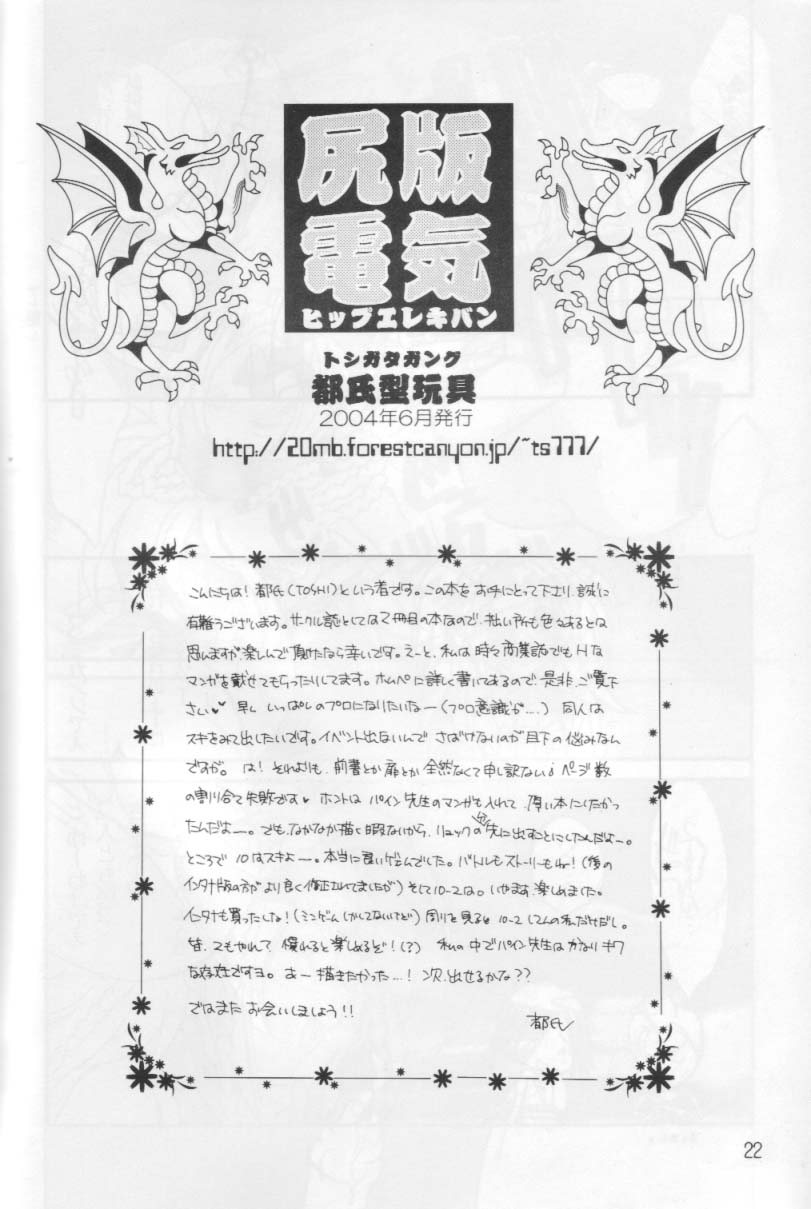 尻版
電気
ヒップエレキバン
トシガタガング
都氏型玩具
2004年6月発行
http://20mb.forestcanyon.jp/~ts777/
こんにちは!都氏(TOSHI)という者です。この本をお手にとって下さり、誠に
有難うございます。サークル誌としては2冊目の本なので、拙い所も色々あるとは
思いますが楽しんで頂けたなら幸いです。えーと、私は時々商業誌でもHな
マンガを載せてもらったりしてます。ホムペに詳しく書いてあるので、是非、ご覧下
さい♥♥ 早くいっぱしのプロになりたいなー(プロ意識が....) 同人は
スキをみて出したいです。イベント出ないんで さばけないのが目下の悩みなん
ですが。は!それよりも、前書とか扉とか全然なくて申し訳ない ページ数
の割り合て失敗です♥ ホントは パイン先生のマンガも入れて、厚い本にしたかっ
たんだよー。でも、なかなか描く暇ないから、リュックの先に出すことにしたんだよー。
ところで 10はスキよー。本当に良いゲームでした。バトルもストーリーも (後の
インタナ版の方がより良く修正されてましたが) そして10-2は。いやます、楽しめました。
インタナも買ったしな! 周りを見ると10-2 私だけだし。
皆、 慣れると楽しめるぞ!(?) 私の中でパイン先生はかなりキワ
な存在ですヨ。あー描きたかった...!次、出せるかな??
ではまたお会いしましょう!!
都氏
22